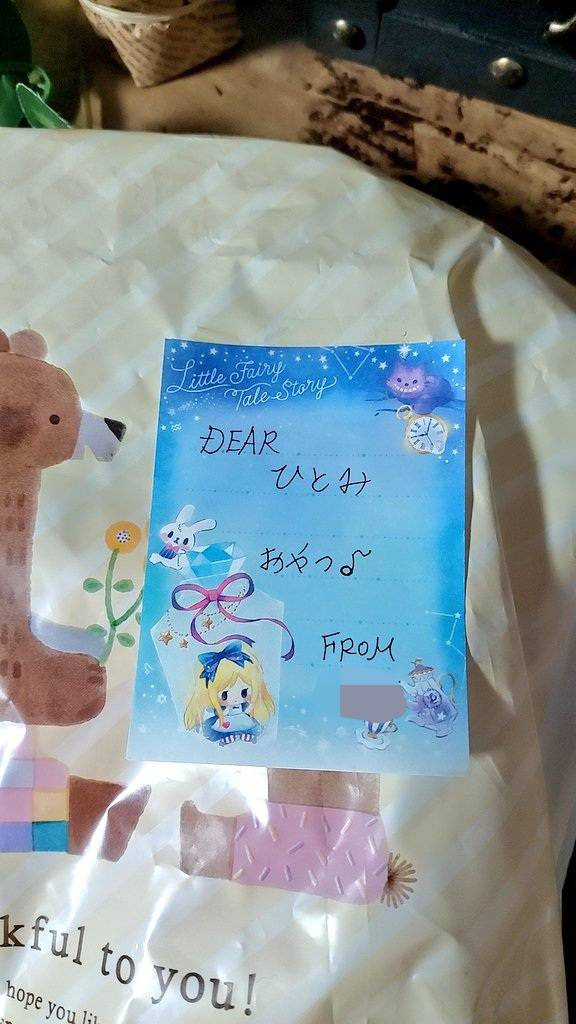 Little Fairy
Tale Story
DEAR
ひとみ
おやつ♪
FROM
kful to you!
hope you li